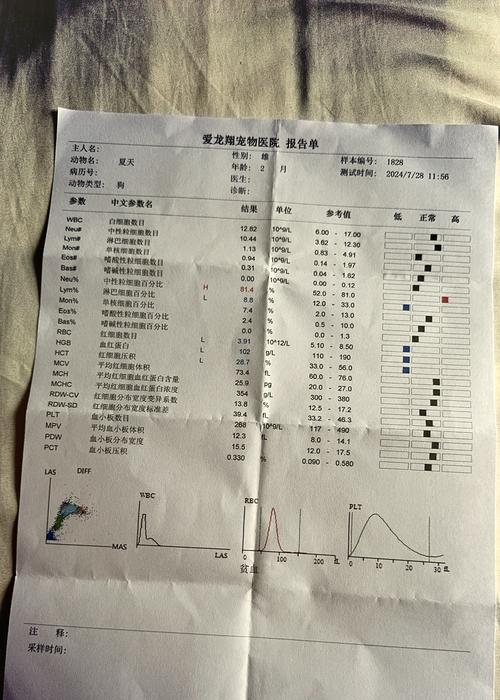 爱龙翔宠物医院 报告单
主人名: 性别: 雄 样本编号: 1828
动物名: 夏天 年龄: 2 月 测试时间: 2024/7/28 11:56
病历号: 医生:
动物类型: 狗 诊断:
参数 中文参数名 结果 单位 参考值 低 正常 高
WBC 白细胞数目 12.82 10^9/L 6.00 - 17.00
Neu# 中性粒细胞数目 10.44 10^9/L 3.62 - 12.30
Lym# 淋巴细胞数目 1.13 10^9/L 0.83 - 4.91
Mon# 单核细胞数目 0.94 10^9/L 0.14 - 1.97
Eos# 嗜酸性粒细胞数目 0.31 10^9/L 0.04 - 1.62
Bas# 嗜碱性粒细胞数目 0.00 10^9/L 0.00 - 0.12
Neu% 中性粒细胞百分比 H 81.4 % 52.0 - 81.0
Lym% 淋巴细胞百分比 L 8.8 % 12.0 - 33.0
Mon% 单核细胞百分比 7.4 % 2.0 - 13.0
Eos% 嗜酸性粒细胞百分比 2.4 % 0.5 - 10.0
Bas% 嗜碱性粒细胞百分比 0.0 % 0.0 - 1.3
RBC 红细胞数目 L 3.91 10^12/L 5.10 - 8.50
HGB 血红蛋白 L 102 g/L 110 - 190
HCT 红细胞压积 L 28.7 % 33.0 - 56.0
MCV 平均红细胞体积 73.4 fL 60.0 - 76.0
MCH 平均红细胞血红蛋白含量 25.9 pg 20.0 - 27.0
MCHC 平均红细胞血红蛋白浓度 354 g/L 300 - 380
RDW-CV 红细胞分布宽度变异系数 13.8 % 12.5 - 17.2
RDW-SD 红细胞分布宽度标准差 39.4 fL 33.2 - 46.3
PLT 血小板数目 268 10^9/L 117 - 490
MPV 平均血小板体积 12.3 fL 8.0 - 14.1
PDW 血小板分布宽度 15.5 12.0 - 17.5
PCT 血小板压积 0.330 % 0.090 - 0.580
LAS DIFF WBC RBC PLT
MAS LAS 0 100 200 fL 0 10 20 30 fL
贫血
注 释:
采样时间: